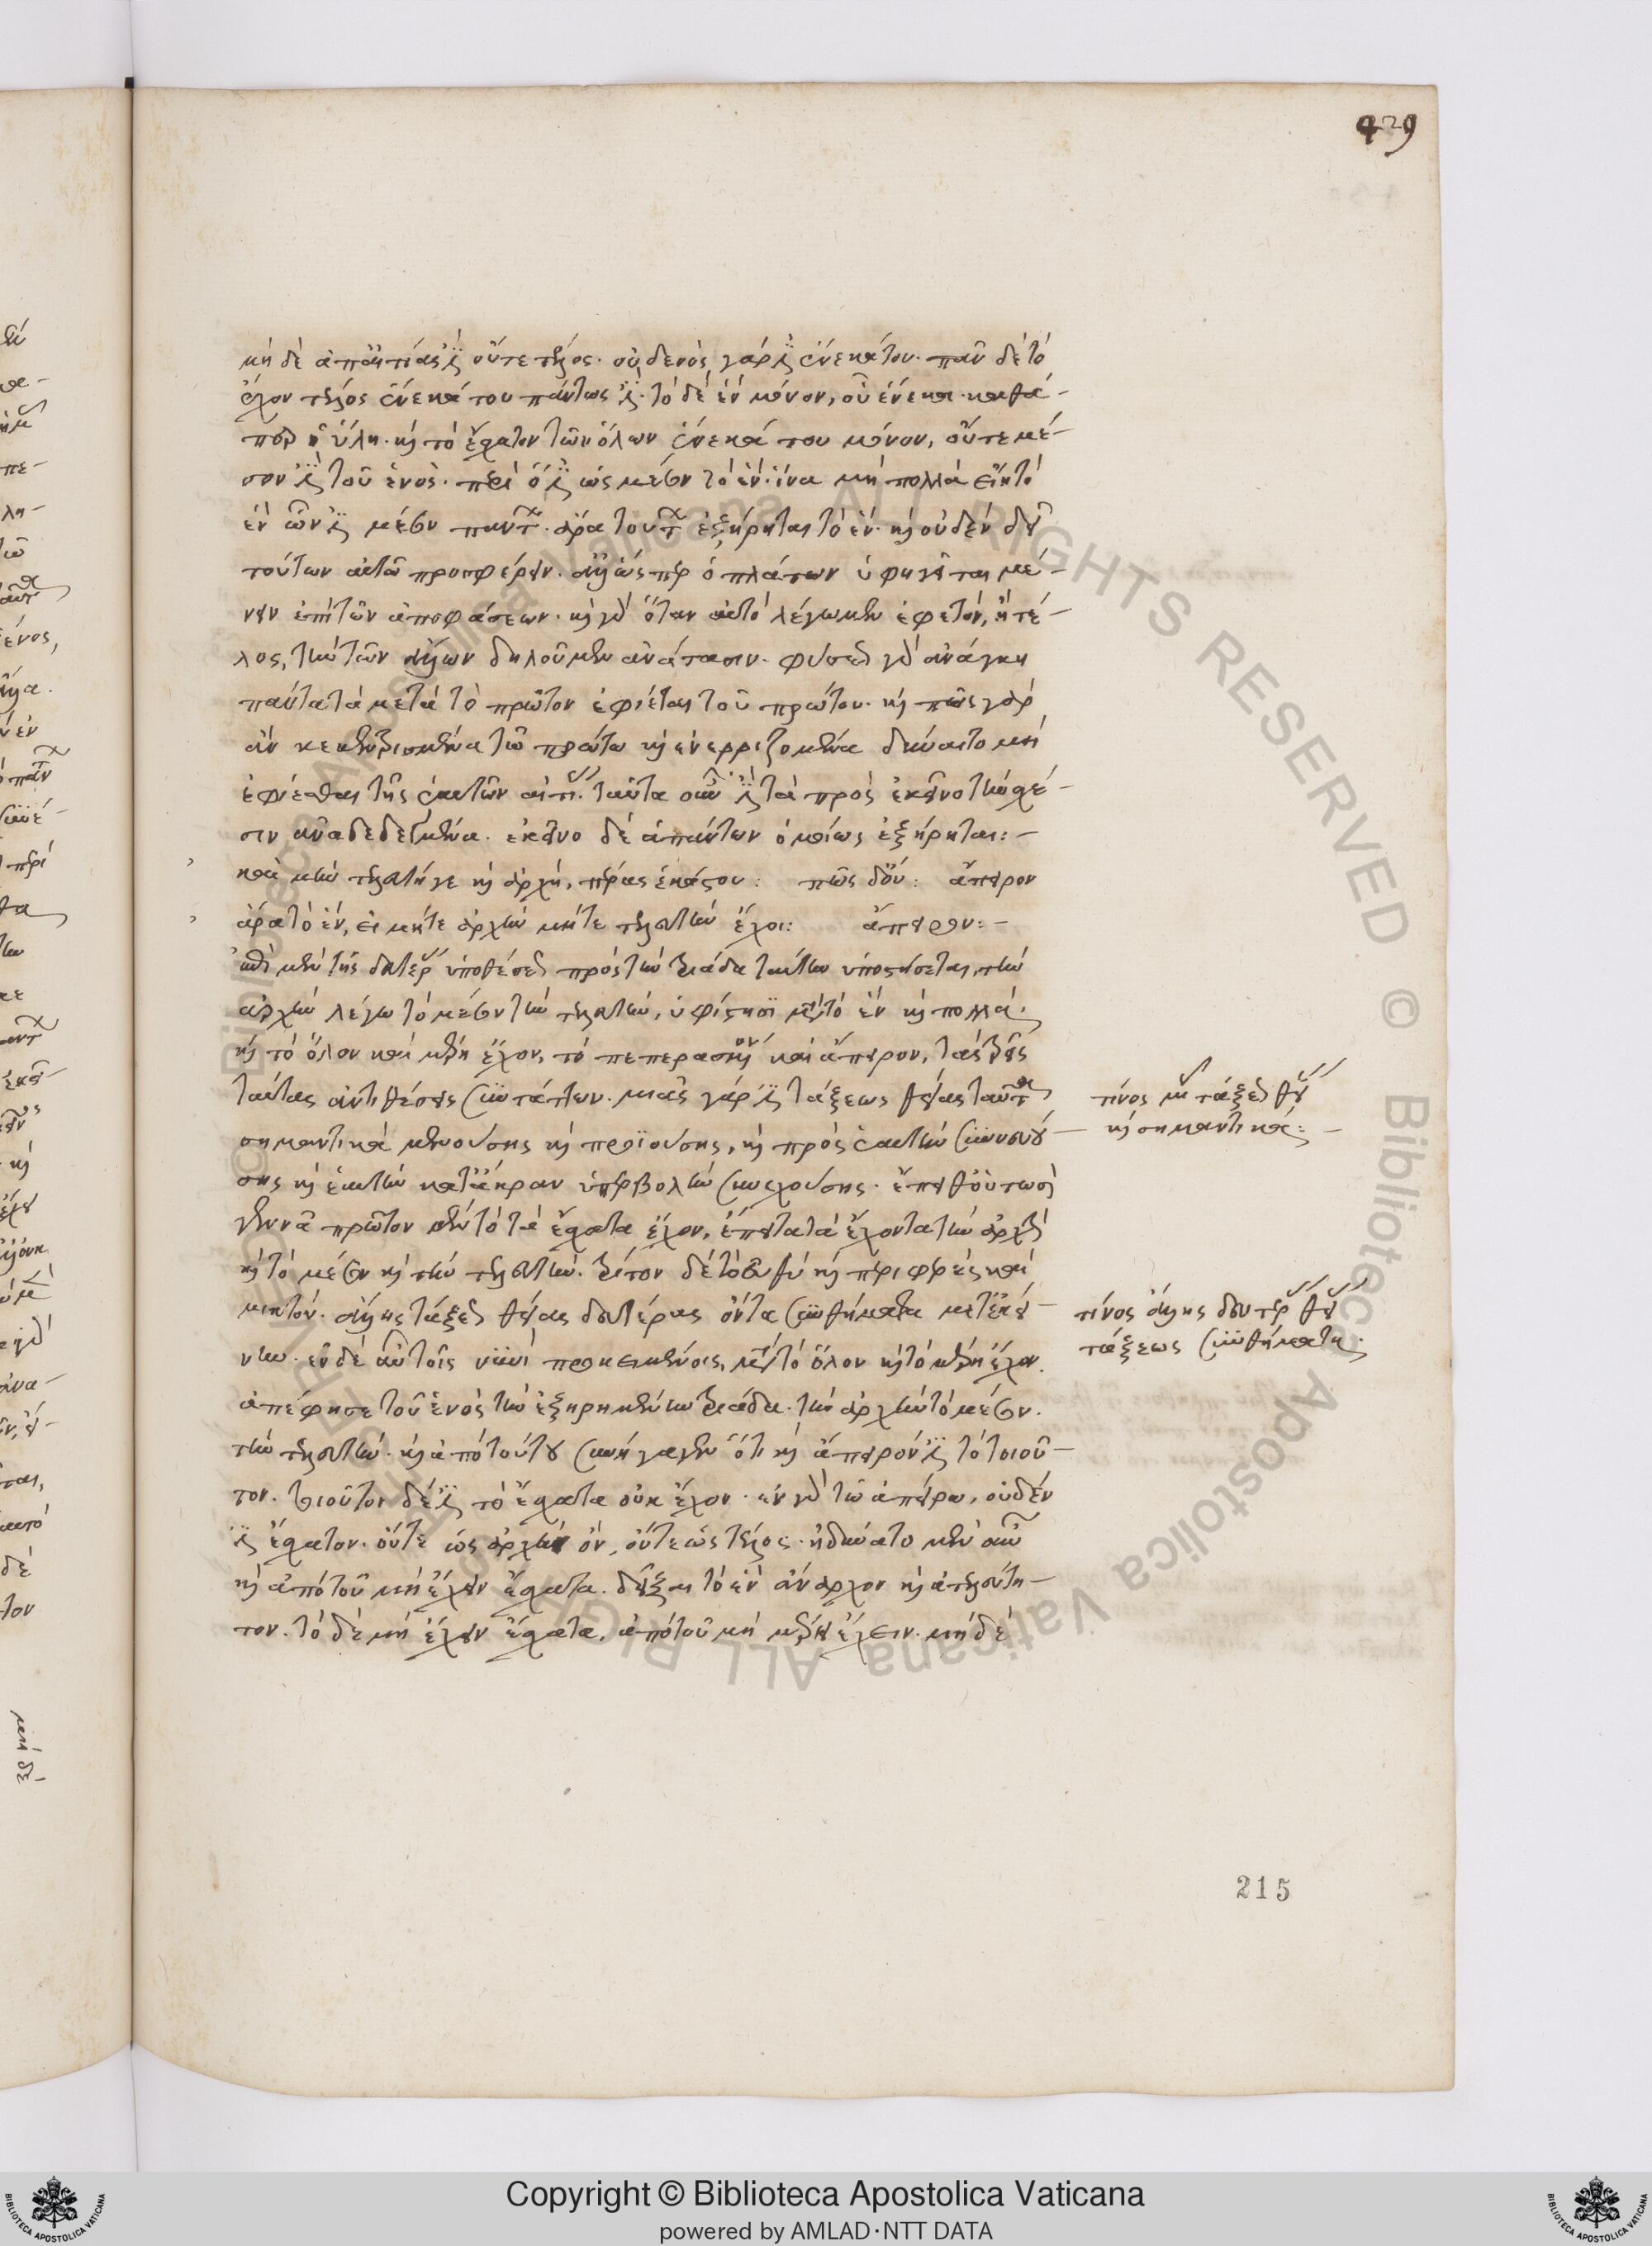 429
μὴ δὲ ἀπάντων ἐστὶν οὔτε τέλος. οὐδενὸς γάρ ἐστιν ἕνεκά του. πᾶν δὲ τὸ
ἔχον τέλος ἕνεκά του πάντως ἐστί. τὸ δὲ ἓν μόνον, οὗ ἕνεκα. καθά-
περ ἡ ὕλη. καὶ τὸ ἔσχατον τῶν ὅλων ἕνεκά του μόνον, οὔτε μέ-
σον ἐστὶ τοῦ ἑνὸς. περὶ ὅ ἐστιν ὡς μέσον τὸ ἕν. ἵνα μὴ πολλὰ εἴη τὸ
ἓν ὧν ἐστι μέσον πάντων. ἄρα τούτων ἐξήρηται τὸ ἕν. καὶ οὐδὲν δεῖ
τούτων αὐτῷ προσφέρειν. ἀλλ' ὥσπερ ὁ πλάτων ὑφηγεῖται μέ-
νειν ἐπὶ τῶν ἀποφάσεων. καὶ γὰρ ὅταν αὐτὸ λέγωμεν ἐφετόν, ἢ τέ-
λος, τὴν τῶν ἄλλων δηλοῦμεν ἀνάτασιν. φύσεως γὰρ ἀνάγκῃ
πάντα τὰ μετὰ τὸ πρῶτον ἐφίεται τοῦ πρώτου. καὶ πῶς γὰρ
ἂν κεκεντρισμένα τῷ πρώτῳ καὶ ἐνερριζομένα δύναιτο μὴ
ἐφίεσθαι τῆς ἑαυτῶν αἰτίας. ταῦτα οὖν ἐστι τὰ πρὸς ἐκεῖνο τὴν σχέ-
σιν ἀναδεδεγμένα. ἐκεῖνο δὲ ἁπάντων ὁμοίως ἐξῄρηται: -
καὶ μὴν τελευτή γε καὶ ἀρχὴ, πέρας ἑκάστου: πῶς δ' οὔ: ἄπειρον
ἄρα τὸ ἕν, εἰ μήτε ἀρχὴν μήτε τελευτὴν ἔχοι: ἄπειρον: -
ἐπὶ μὲν τῆς δευτέρας ὑποθέσεως πρὸς τὴν τριάδα ταύτην ὑποστήσεται, τὴν
ἀρχὴν λέγω τὸ μέσον τὴν τελευτὴν, ὑφίστησι μετὰ τὸ ἓν καὶ πολλά.
καὶ τὸ ὅλον καὶ μέρη ἔχον, τὸ πεπερασμένον καὶ ἄπειρον, τὰς τρεῖς
ταύτας ἀντιθέσεις συντάττων. μιᾶς γάρ ἐστι τάξεως θείας ταῦτα
σημαντικὰ μενούσης καὶ προϊούσης, καὶ πρὸς ἑαυτὴν συννευού-
σης καὶ ἑαυτὴν κατ' ἄκραν ὑπερβολὴν συνεχούσης. ἔπειθ' οὑτωσὶ
γεννᾷ πρῶτον μὲν τὸ τὰ ἔσχατα ἔχον, ἔπειτα τὰ ἔχοντα τὴν ἀρχὴν
καὶ τὸ μέσον καὶ τὴν τελευτὴν. τρίτον δὲ τὸ εὐθὺ καὶ περιφερὲς καὶ
μικτόν. ἄλλης τάξεως θείας δευτέρας ὄντα συνθήματα μετ' ἐκεί-
νην. ἐν δὲ αὐτοῖς νυνὶ προκειμένοις, μετὰ τὸ ὅλον καὶ τὸ μέρη ἔχον.
ἀπέφησε τοῦ ἑνὸς τὴν ἐξῃρημένην τριάδα. τὴν ἀρχὴν τὸ μέσον.
τὴν τελευτὴν. καὶ ἀπὸ τούτου συνήγαγεν ὅτι καὶ ἄπειρόν ἐστι τὸ τοιοῦ-
τον. τοιοῦτον δέ ἐστι τὸ ἔσχατα οὐκ ἔχον. ἐν γὰρ τῷ ἀπείρῳ, οὐδέν
ἐστιν ἔσχατον. οὔτε ὡς ἀρχὴ ὄν, οὔτε ὡς τέλος. ἠδύνατο μὲν οὖν
καὶ ἀπὸ τοῦ μὴ ἔχειν ἔσχατα. δεῖξαι τὸ ἓν ἄναρχον καὶ ἀτελεύτη-
τον. τὸ δὲ μὴ ἔχειν ἔσχατα, ἀπὸ τοῦ μὴ μέρη ἔχειν. μὴ δὲ
τίνος μὲν τάξεως θείας
καὶ σημαντικά: -
τίνος ἄλλης δευτέρας θείας
τάξεως συνθήματα.
215
Copyright © Biblioteca Apostolica Vaticana
powered by AMLAD·NTT DATA